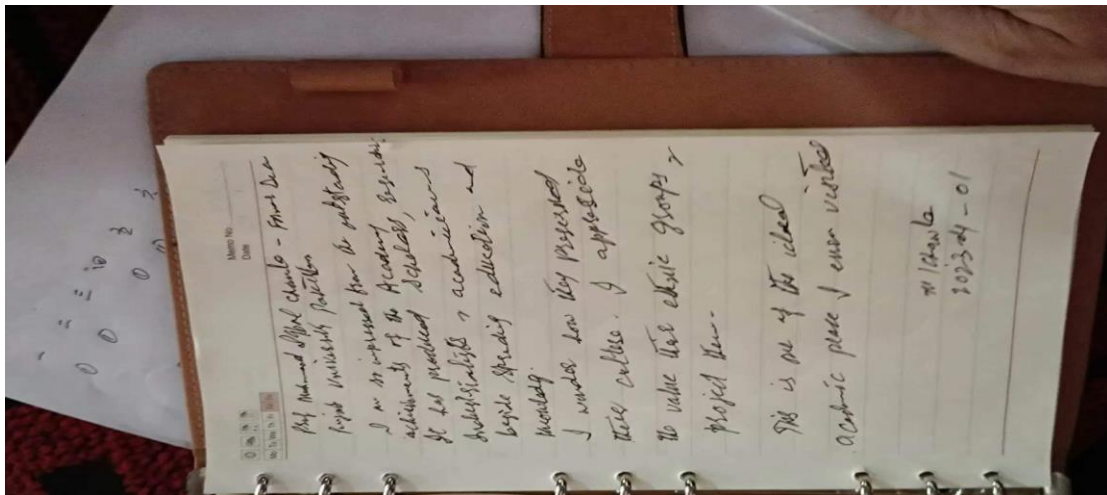 Memo No.
Date
Mo Tu We Th Fr
Prof Muhammad Iqbal Chawla - Former Dean
Punjab University Pakistan
I am so impressed from the outstanding
achievements of the Academy, especially
It has produced Scholars,
Industrialists, academicians
beside spreading education and
knowledge.
I wonder how they preserved
their culture. I appreciate
the value these ethnic groups &
project them.
This is one of the ideal
academic place I ever visited
Chawla
2023-04-01